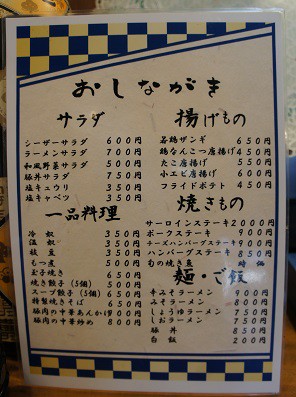 おしながき
サラダ
シーザーサラダ 600円
ラーメンサラダ 700円
和風野菜サラダ 500円
豚丼サラダ 750円
塩キュウリ 350円
塩キャベツ 350円
一品料理
冷奴 350円
温奴 350円
枝豆 350円
もつ煮 500円
玉子焼き 650円
焼き餃子(5個) 500円
スープ餃子(5個) 650円
特製焼きそば 650円
豚肉の中華あんかけ 900円
豚肉の中華炒め 800円
揚げもの
若鶏ザンギ 650円
鶏なんこつ唐揚げ 450円
たこ唐揚げ 550円
小エビ唐揚げ 600円
フライドポテト 450円
焼きもの
サーロインステーキ 2000円
ポークステーキ 900円
チーズハンバーグステーキ 900円
ハンバーグステーキ 850円
旬の焼き魚 時価
麺・ご飯
辛みそラーメン 850円
みそラーメン 800円
しょうゆラーメン 750円
しおラーメン 750円
豚丼 850円
白飯 200円